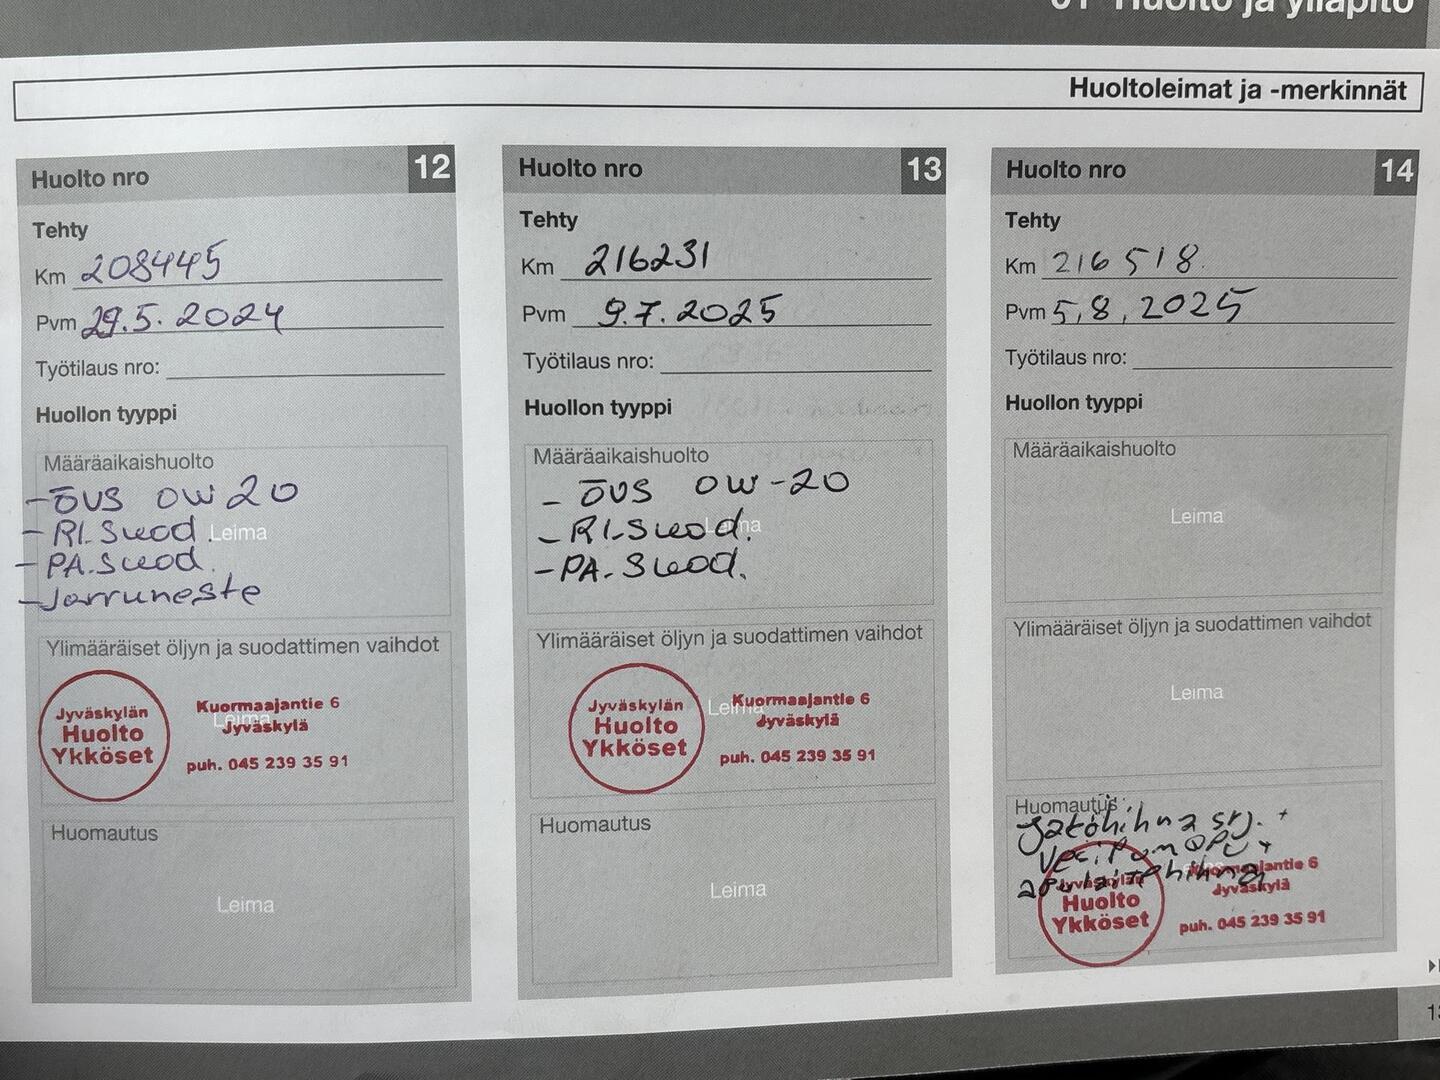 01 Huolto ja ylläpito
Huoltoleimat ja -merkinnät
Huolto nro 12
Tehty
Km 208445
Pvm 29.5.2024
Työtilaus nro:
Huollon tyyppi
Määräaikaishuolto
- ÖVS 0W20
- RI.Suod. Leima
- PA.Suod.
- Jarruneste
Ylimääräiset öljyn ja suodattimen vaihdot
Leima
Jyväskylän
Huolto
Ykköset
Kuormaajantie 6
Jyväskylä
puh. 045 239 35 91
Huomautus
Leima
Huolto nro 13
Tehty
Km 216231
Pvm 9.7.2025
Työtilaus nro:
Huollon tyyppi
Määräaikaishuolto
- ÖVS 0W-20
- RI.Suod. Leima
- PA.Suod.
Ylimääräiset öljyn ja suodattimen vaihdot
Leima
Jyväskylän
Huolto
Ykköset
Kuormaajantie 6
Jyväskylä
puh. 045 239 35 91
Huomautus
Leima
Huolto nro 14
Tehty
Km 216518
Pvm 5,8,2025
Työtilaus nro:
Huollon tyyppi
Määräaikaishuolto
Leima
Ylimääräiset öljyn ja suodattimen vaihdot
Leima
Huomautus
Jakohihna srj. +
Vesipumppu +
apulaitehihna
Jyväskylän
Huolto
Ykköset
Kuormaajantie 6
Jyväskylä
puh. 045 239 35 91